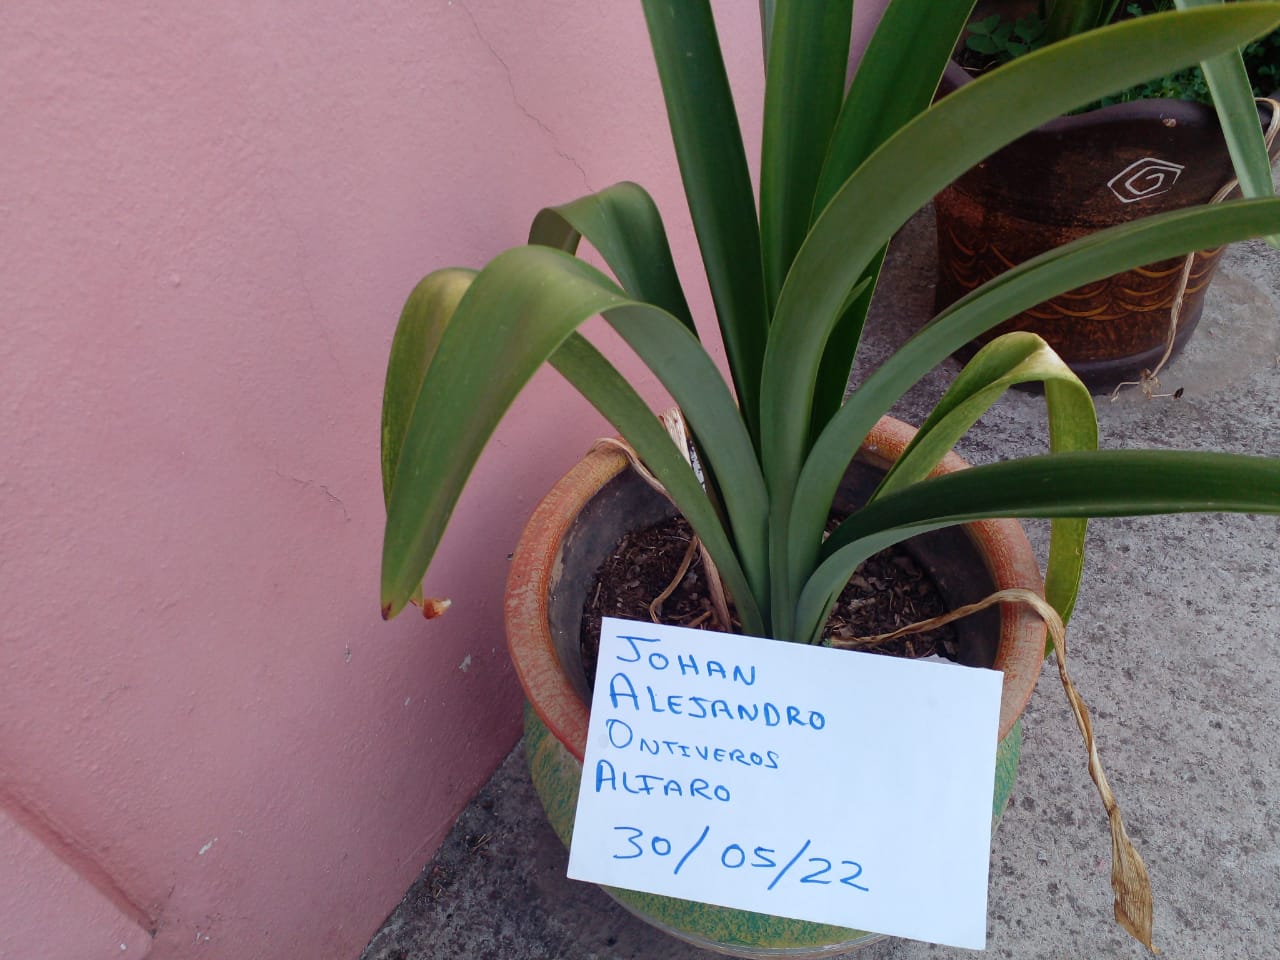 JOHAN
ALEJANDRO
ONTIVEROS
ALFARO
30/05/22